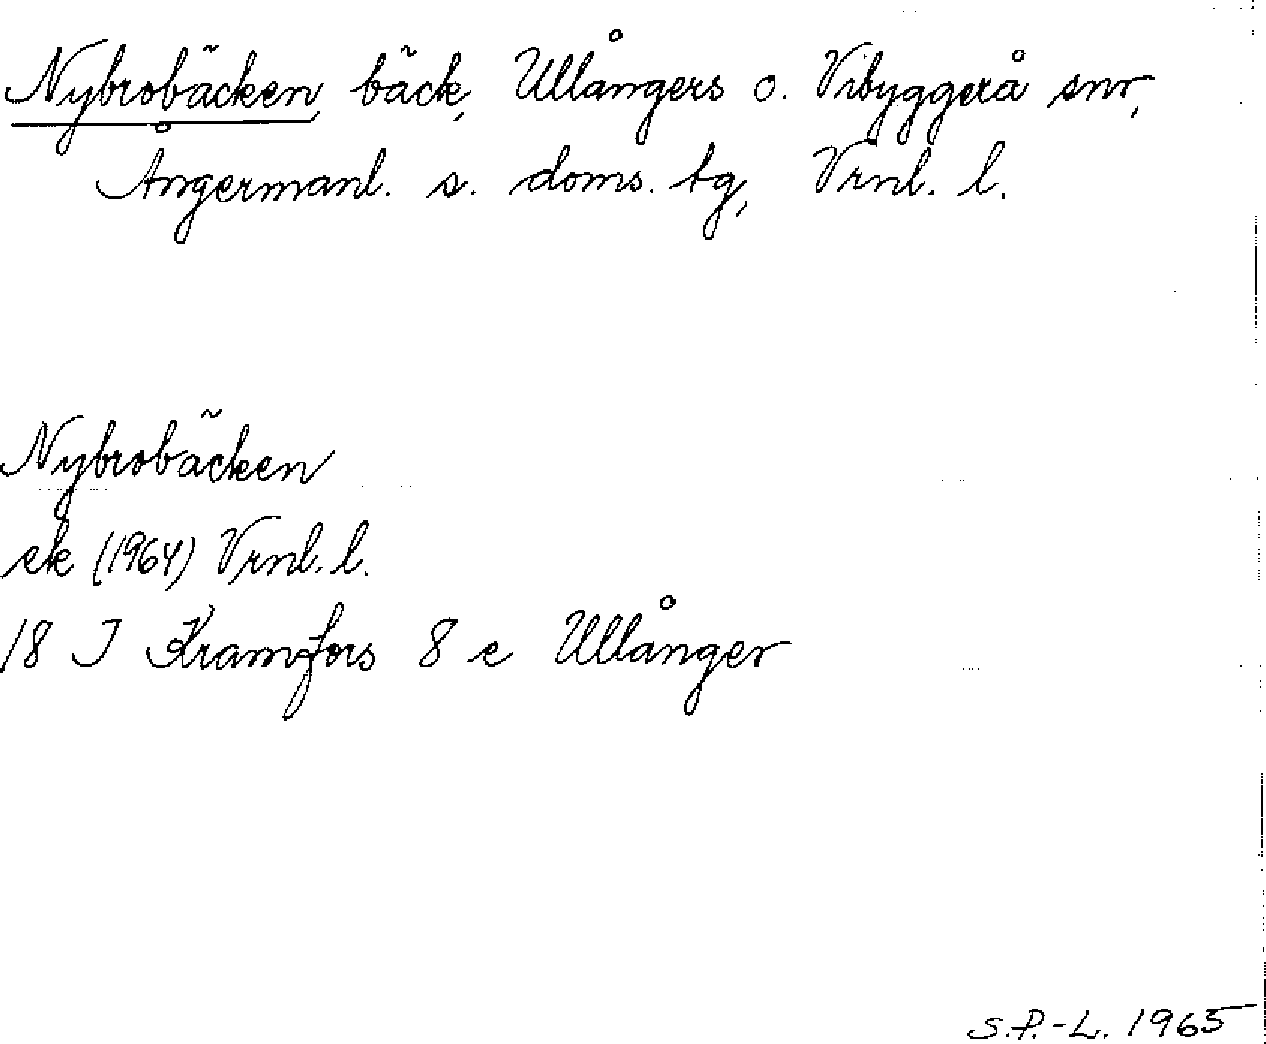 Nybrobäcken, bäck, Ullångers o. Vibyggerå snr,
Ångermanl. s. doms. tg, Vrnl. l.
Nybrobäcken
ek (1964) Vrnl. l.
18 J Kramfors 8 e Ullånger
S.P.-L. 1965